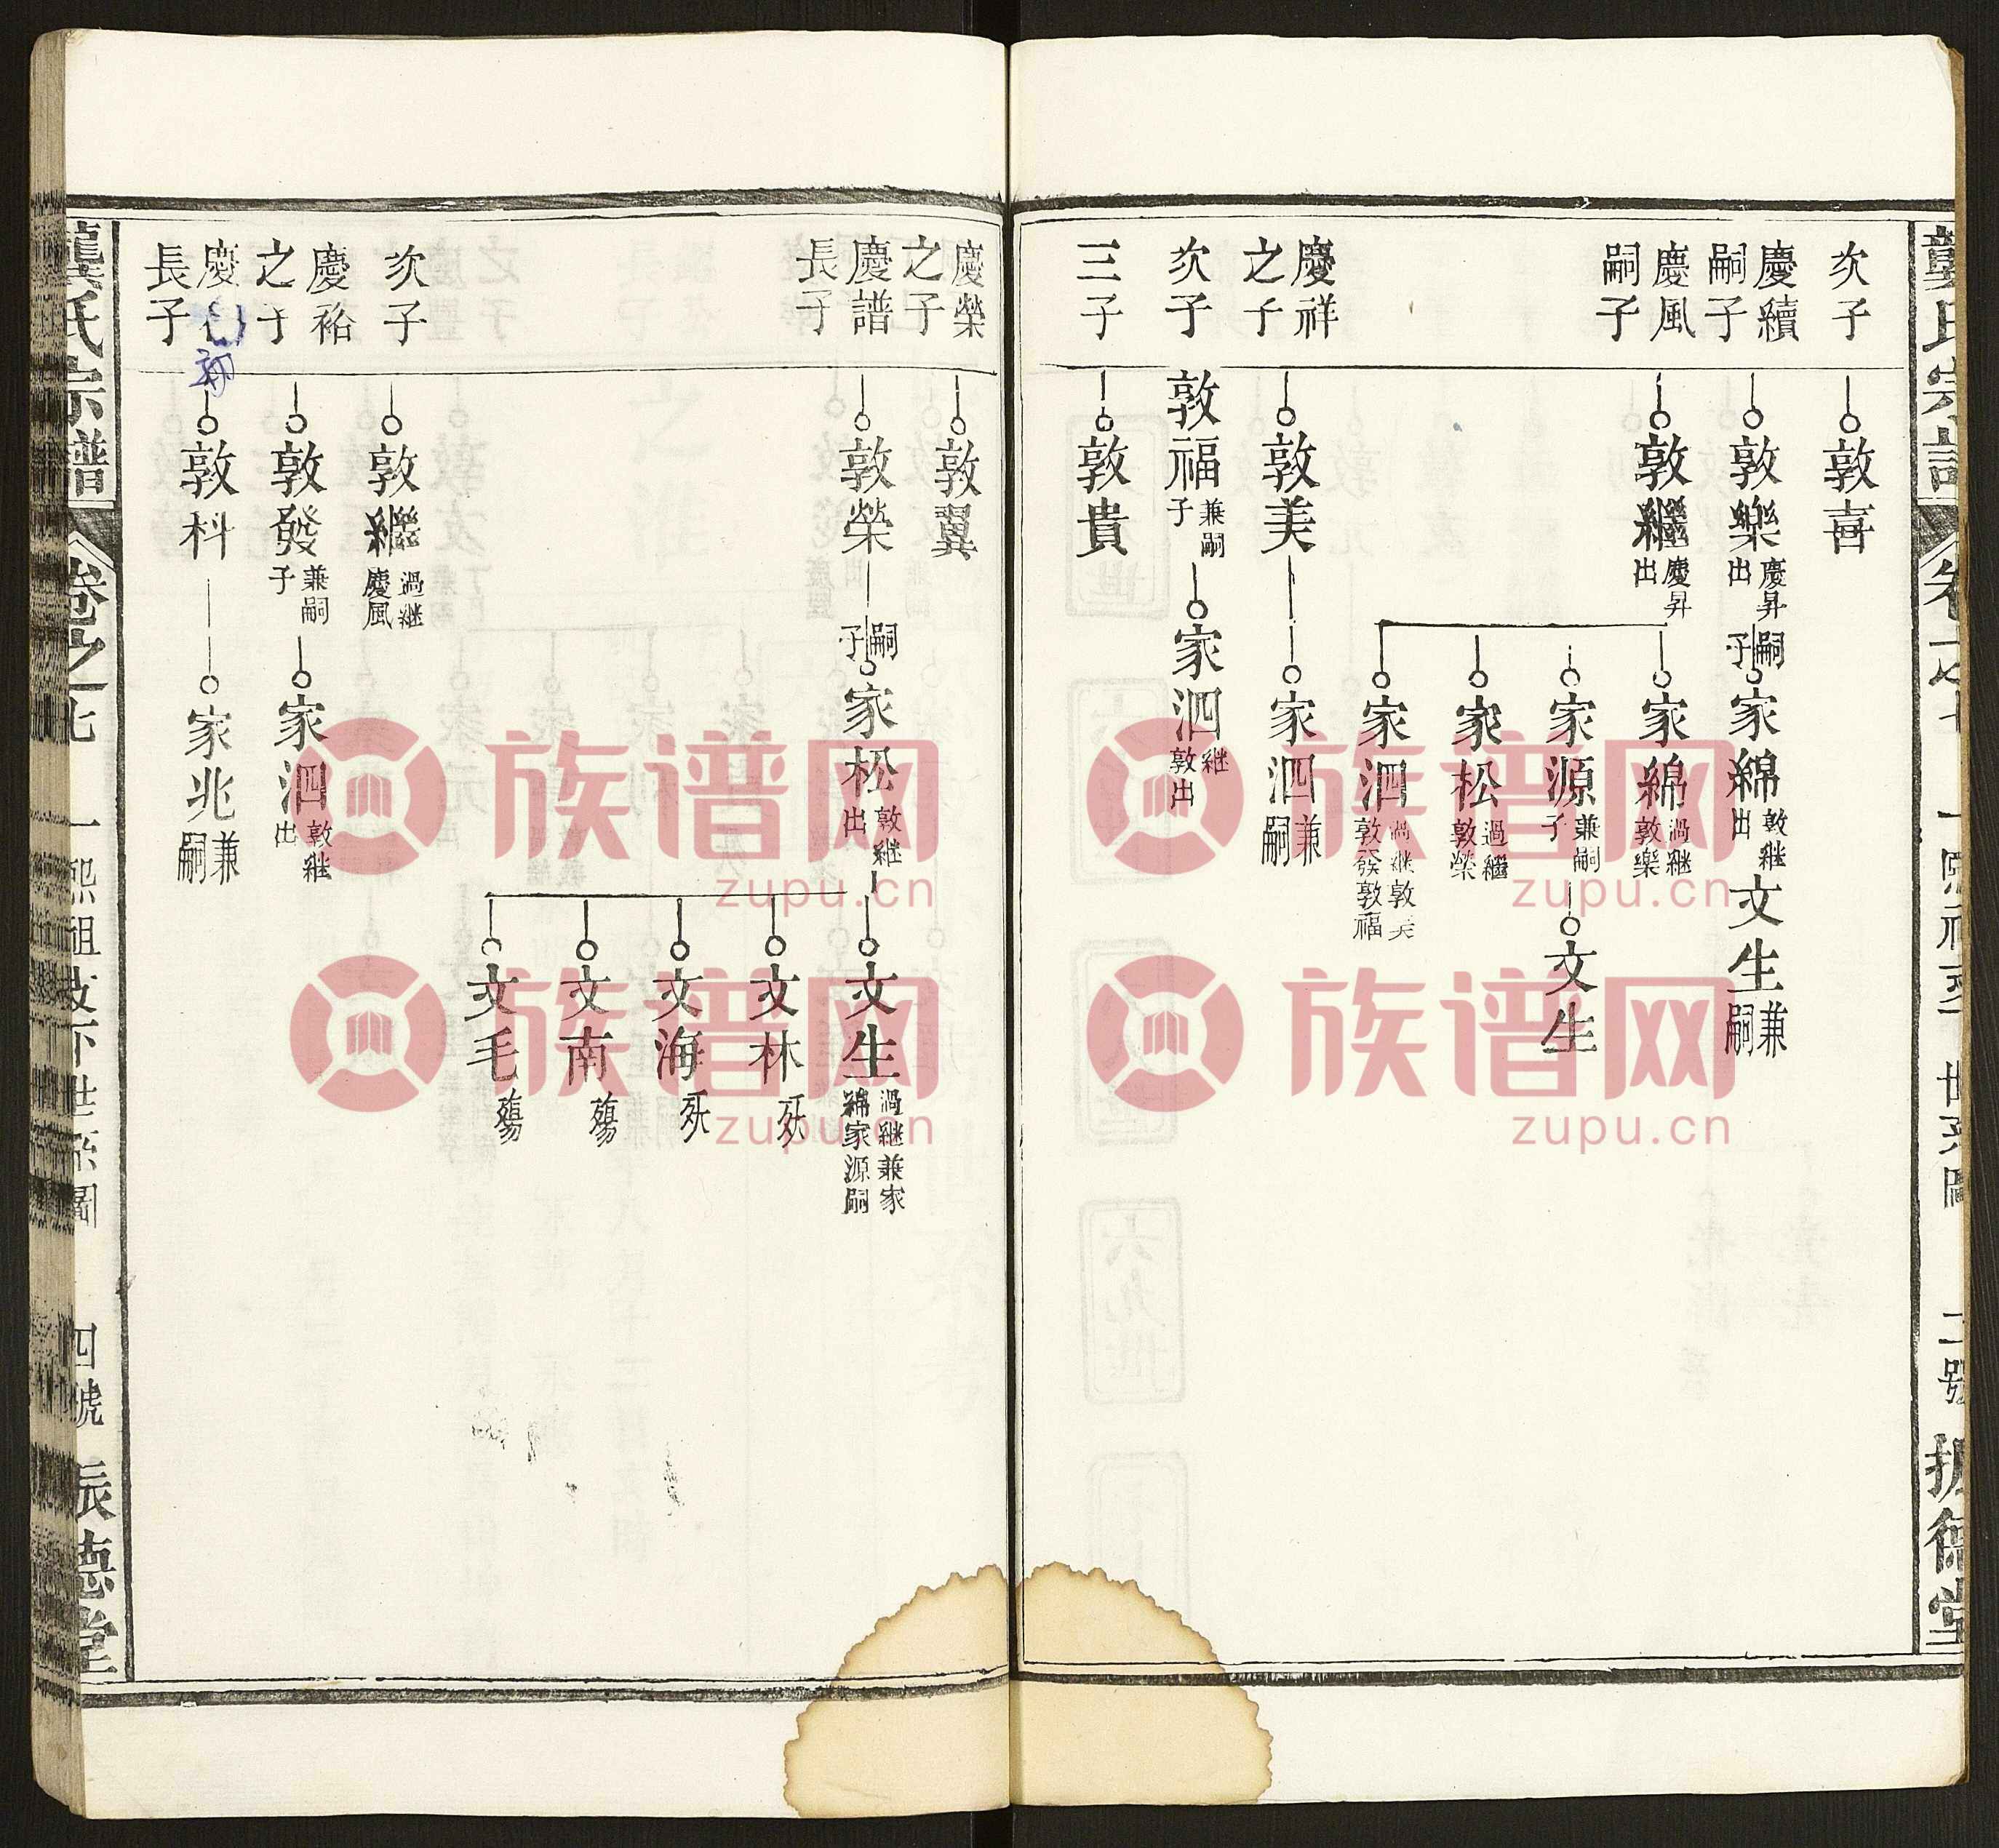 次子
敦喜
慶續
嗣子
敦樂
慶昇
出
嗣
子
家綿
敦継
出
文生
兼
嗣
慶風
嗣子
敦繼
慶昇
出
家綿
過継
敦樂
家源
兼嗣
子
文生
家松
過繼
敦榮
家泗
過継敦美
敦發敦福
慶祥
之子
敦美
家泗
兼
嗣
次子
敦福
兼嗣
子
家泗
継
敦出
三子
敦貴
慶榮
之子
敦翼
慶譜
長子
敦榮
嗣
子
家松
敦継
出
文生
過継兼家
綿家源嗣
文林
殀
文海
殀
文南
殤
文毛
殤
次子
敦繼
過継
慶風
慶裕
之子
敦發
兼嗣
子
家泗
敦継
出
慶
初
長子
敦科
家兆
兼
嗣
龔氏宗譜
卷之七
四號
振德堂
二號
振德堂
族谱网
zupu.cn
族谱网
zupu.cn
族谱网
zupu.cn
族谱网
zupu.cn